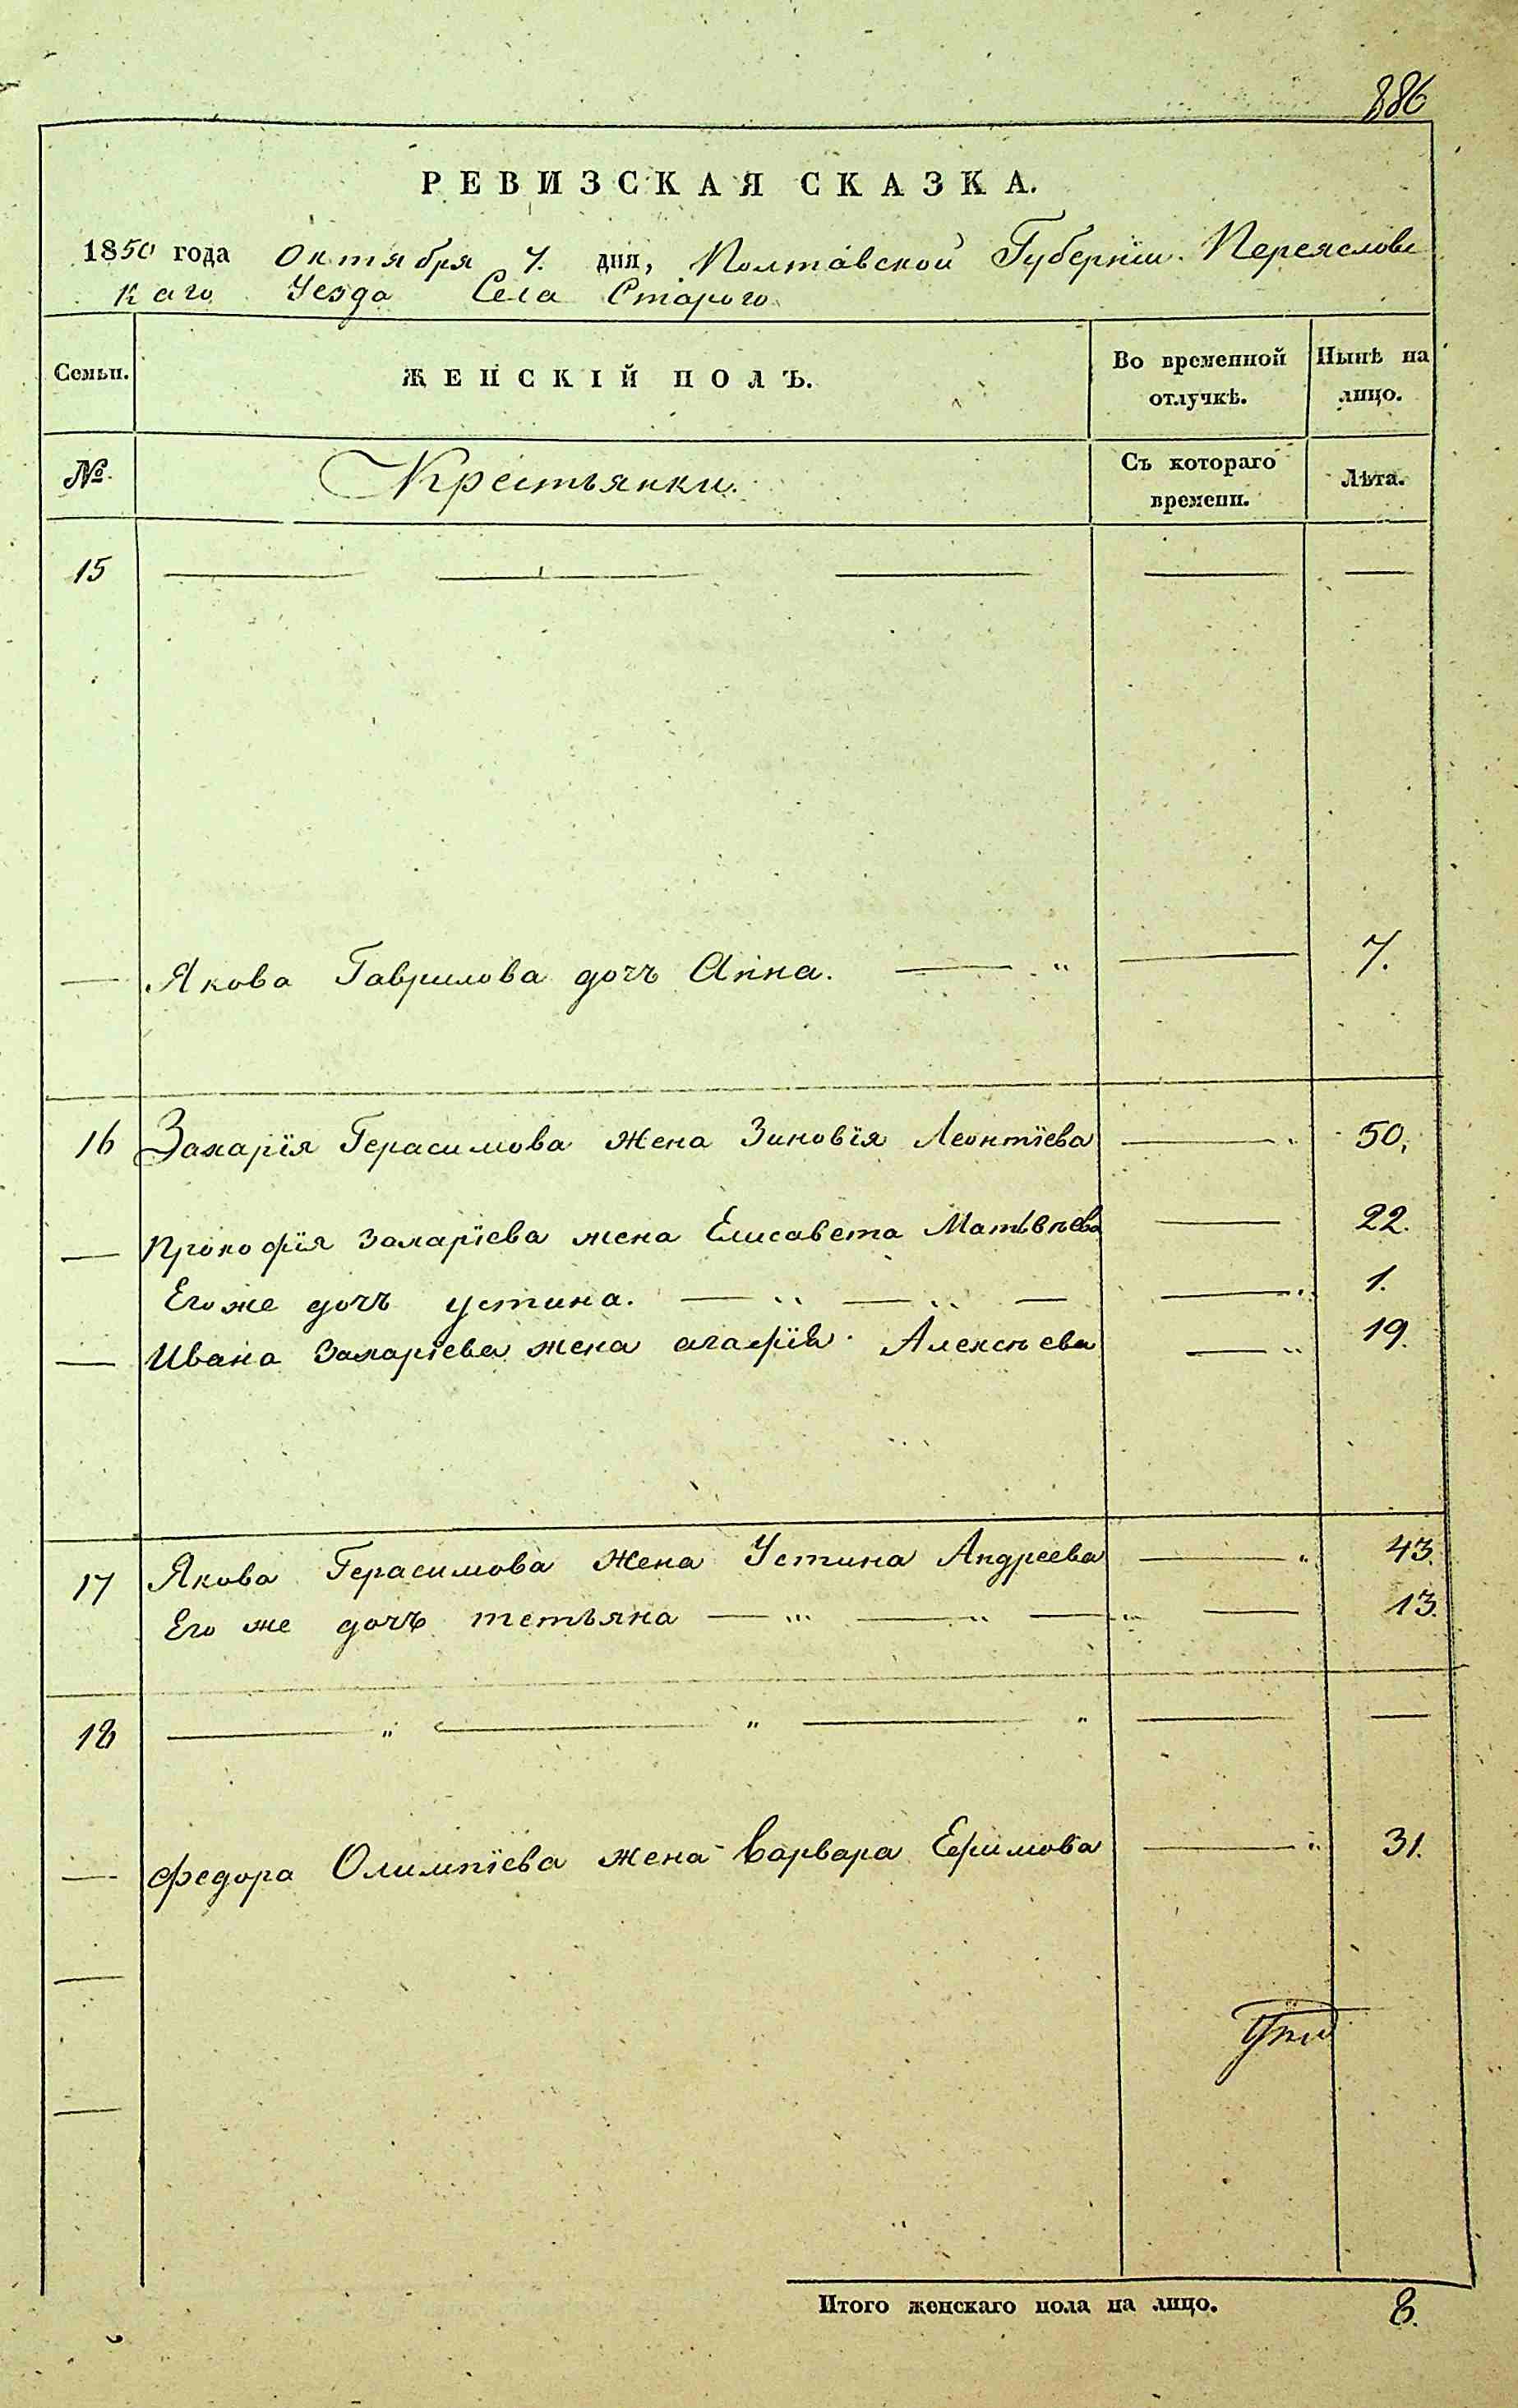 886
РЕВИЗСКАЯ СКАЗКА.
1850 года Октября 7. дня, Полтавской Губернїи. Переяславс
каго Уезда Села Старого
Семьи. ЖЕНСКІЙ ПОЛЪ. Во временной отлучкѣ. Нынѣ на лицо.
№. Крестьянки. Съ котораго времени. Лѣта.
15
Якова Гаврилова дочъ Анна. 7.
16 Захарїя Герасимова жена Зиновїя Леонтїева 50.
Прокофїя Захарїева жена Елисавета Матвѣева 22.
Его же дочъ устина. 1.
Ивана Захарїева жена агафїя Алексѣева 19.
17 Якова Герасимова жена Устина Андреева 43.
Его же дочъ тетьяна 13.
18
федора Олимпїева жена Варвара Ефимова 31.
Итого женскаго пола на лицо. 8.